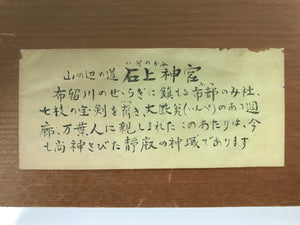 いそのかみ
山の辺の道 石上神宮
布留川のせゝらぎに鎮もる布都のみ社、
七枝の宝剣を齋き、大厳瓮(いんべ)のある廻
廊、万葉人に親しまれたこのあたりは、今
も尚神さびた静寂の神域であります